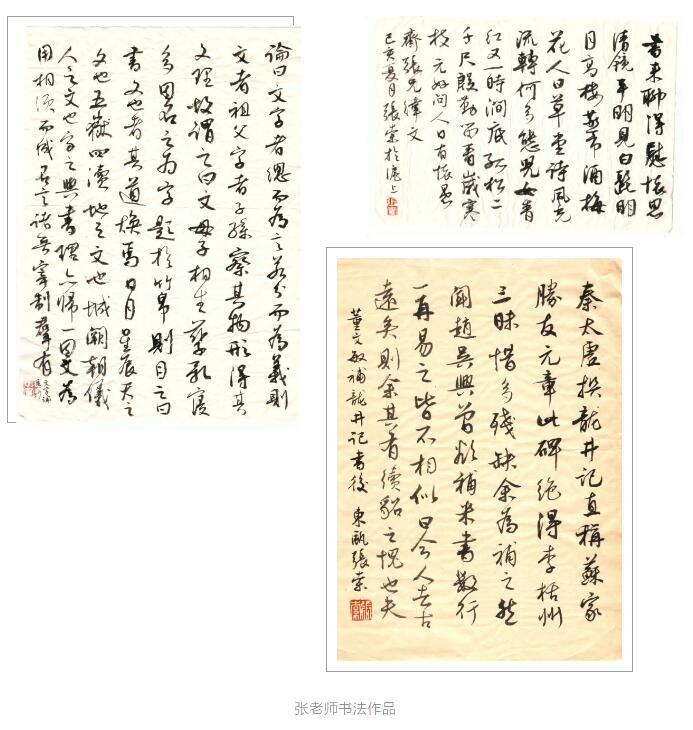 論曰文字者總而為言若分而為義則
文者祖父字者子孫察其物形得其
文理故謂之曰文母子相生孳乳寖
多因名之為字題於竹帛則目之曰
書文也者其道煥焉日月星辰天之
文也五嶽四瀆地之文也城闕朝儀
人之文也字之與書理亦歸一因文為
用相須而成名言諸無宰制群有
書來聊得慰懷思
清鏡平明見白髭明
月高樓燕市酒梅
花人日草堂詩風光
流轉何多態兒女青
紅又一時澗底孤松二
千尺殷勤留看歲寒
枝 元好問人日有懷愚
齋張兄緯文
己亥夏月張索於滬上
秦太虛撰龍井記直稱蘇家
勝友元章此碑絕得李括州
三昧惜多殘缺余為補之然
聞趙吳興曾欲補米書數行
一再易之皆不相似曰今人去古
遠矣則余其有續貂之愧也夫
董文敏補龍井記書後 東甌張索
张老师书法作品